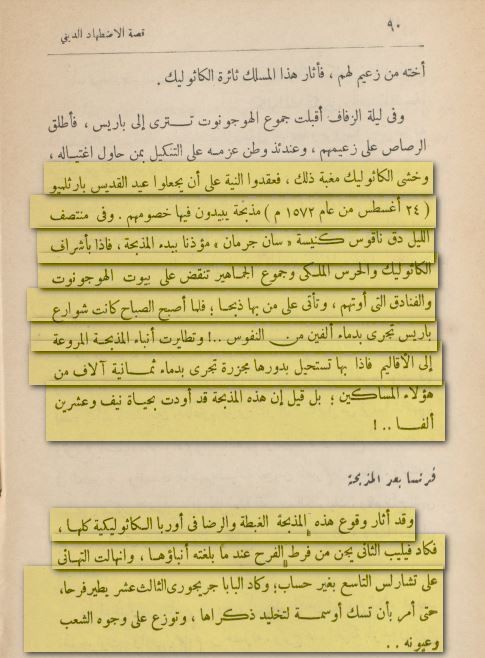 ٩٠
قصة الاضطهاد الديني
أخته من زعيم لهم ، فأثار هذا المسلك ثائرة الكاثوليك .
وفى ليلة الزفاف أقبلت جموع الهوجونوت تـــترى إلى باريس ، فأطلق
الرصاص على زعيمهم ، وعندئذ وطن عزمه على التنكيل بمن حاول اغتياله ،
وخشى الكاثوليك مغبة ذلك ، فعقدوا النية على أن يجعلوا عيد القديس بارثلميو
( ٢٤ أغسطس من عام ١٥٧٢ م ) مذبحة يبيدون فيها خصومهم . وفى منتصف
الليل دق ناقوس كنيسة « سان جرمان » مؤذنا ببدء المذبحة ، فاذا بأشراف
الكاثوليك والحرس الملكى وجموع الجماهير تنقض على بيوت الهوجونوت
والفنادق التى أوتهم ، وتأتى على من بها ذبحا ؛ فلما أصبح الصباح كانت شوارع
باريس تجرى بدماء ألفين من النفوس ..! وتطايرت أنباء المذبحة المروعة
إلى الأقاليم فاذا بها تستحيل بدورها مجزرة تجرى بدماء ثمـانية آلاف من
هؤلاء المساكين ؛ بل قيل إن هذه المذبحة قد أودت بحياة نيف وعشرين
ألفـــا .. !
فرنسا بعد المذبحة
وقد أثار وقوع هذه المذبحة الغبطة والرضا فى أوربا الكاثوليكية كلها ،
فكاد فيليب الثانى يجن من فرط الفرح عند ما بلغته أنباؤهـا ، وانهالت التهانى
على تشارلس التاسع بغير حساب ؛ وكاد البابا جريجورى الثالث عشر يطير فرحا ،
حتى أمر بأن تسك أوسمـــة لتخليد ذكراها ، وتوزع على وجوه الشعب
وعيونه . .